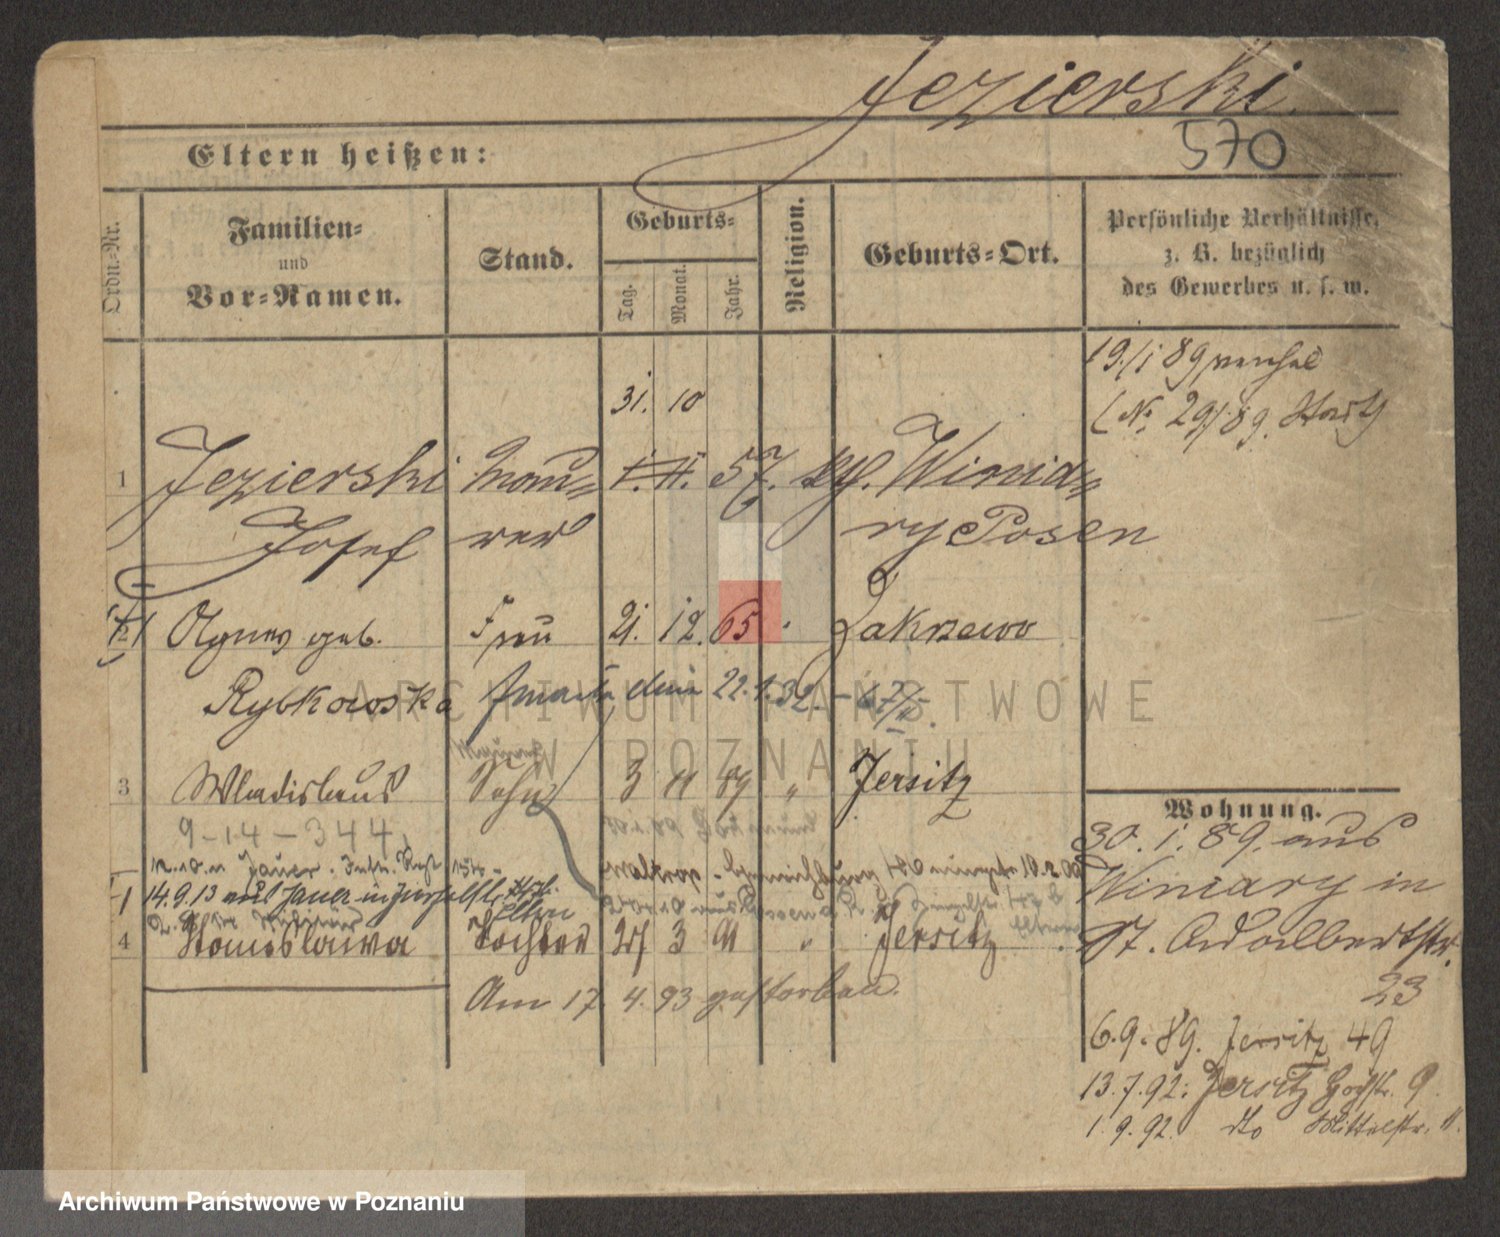 Jezierski.
570
Eltern heißen:
Ordn.-Nr.
Familien-
und
Vor-Namen.
Stand.
Geburts-
Tag.
Monat.
Jahr.
Religion.
Geburts-Ort.
Persönliche Verhältnisse,
z. B. bezüglich
des Gewerbes u. s. w.
19./1 89
(No. 291/89.
31. 10
1 Jezierski Mau- 1. 11. 57. kath. Winia-
Josef rer ry Posen
2 Agnes geb. Frau 21. 12. 65 " Zakrzewo
Rybkowska zmarła dnia 22.1.32. - 67/
3 Wladislaus Sohn 3 11 89 " Jersitz
9-14-344
14.9.13 aus Jauer in
Eltern
4 Stanislawa Tochter 27 3 91 " Jersitz
Am 17. 4. 93 gestorben.
Wohnung.
30. 1. 89. aus
Winiary in
St. Adalbertstr.
23
6.9.89. Jersitz 49
13.7.92. Jersitz 9
1.9.92. dto Mittelstr. 11.
ARCHIWUM PAŃSTWOWE
W POZNANIU
Archiwum Państwowe w Poznaniu